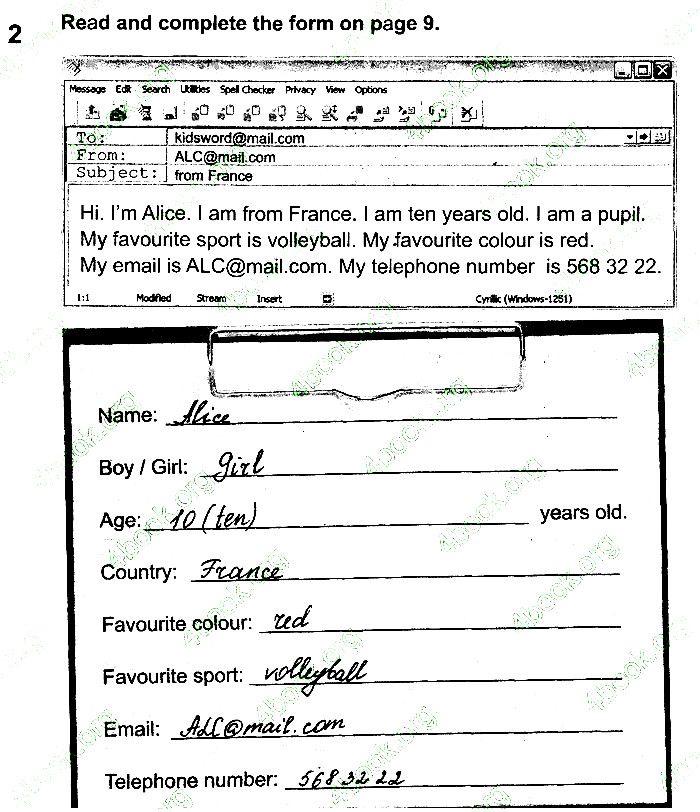 2 Read and complete the form on page 9.
Message Edit Search Utilities Spell Checker Privacy View Options
To: kidsword@mail.com
From: ALC@mail.com
Subject: from France
Hi. I'm Alice. I am from France. I am ten years old. I am a pupil.
My favourite sport is volleyball. My favourite colour is red.
My email is ALC@mail.com. My telephone number is 568 32 22.
1:1 Modified Stream Insert Cyrillic (Windows-1251)
Name: Alice
Boy / Girl: girl
Age: 10 (ten) years old.
Country: France
Favourite colour: red
Favourite sport: volleyball
Email: ALC@mail.com
Telephone number: 568 32 22
4book.org